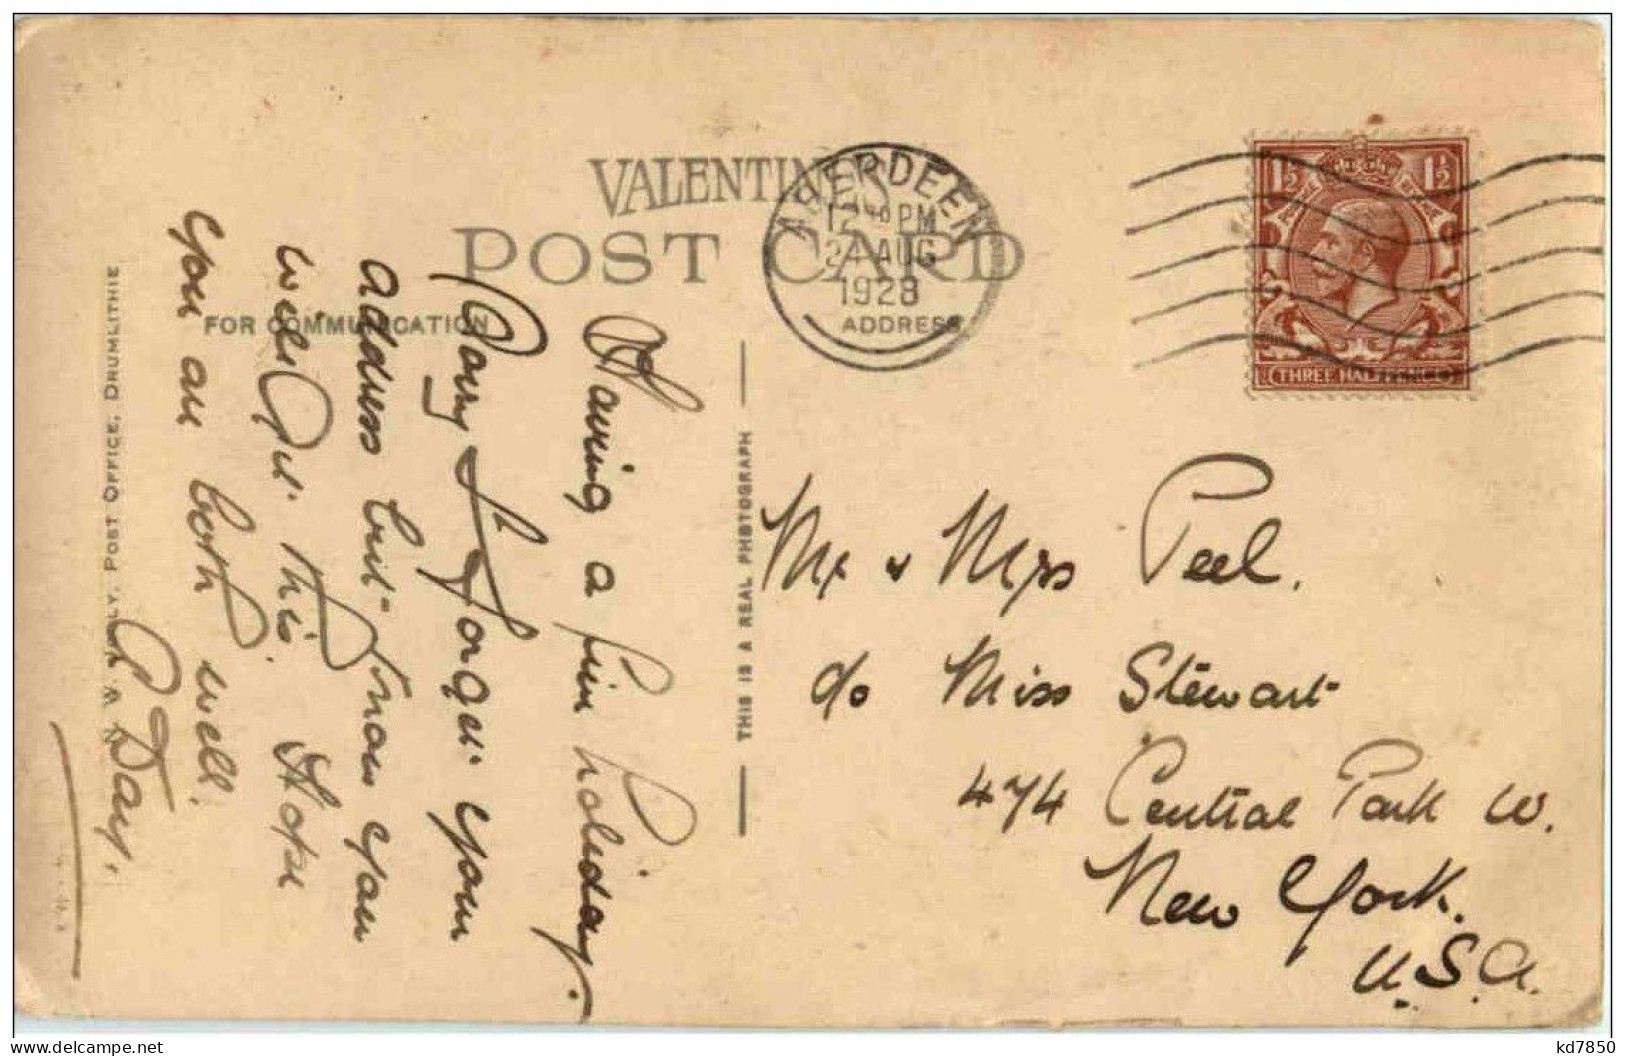 VALENTINE'S
POST CARD
FOR COMMUNICATION
ADDRESS
ABERDEEN
12 PM
24 AUG
1928
1½ 1½
THREE HALFPENCE
Having a fine holiday.
Sorry I forget your
address but know you
will get this. Hope
you are both well.
P. Day.
THIS IS A REAL PHOTOGRAPH
POST OFFICE, DRUMLITHIE
Mr & Mrs Peel.
c/o Miss Stewart
474 Central Park W.
New York.
U.S.A.
www.delcampe.net
kd7850